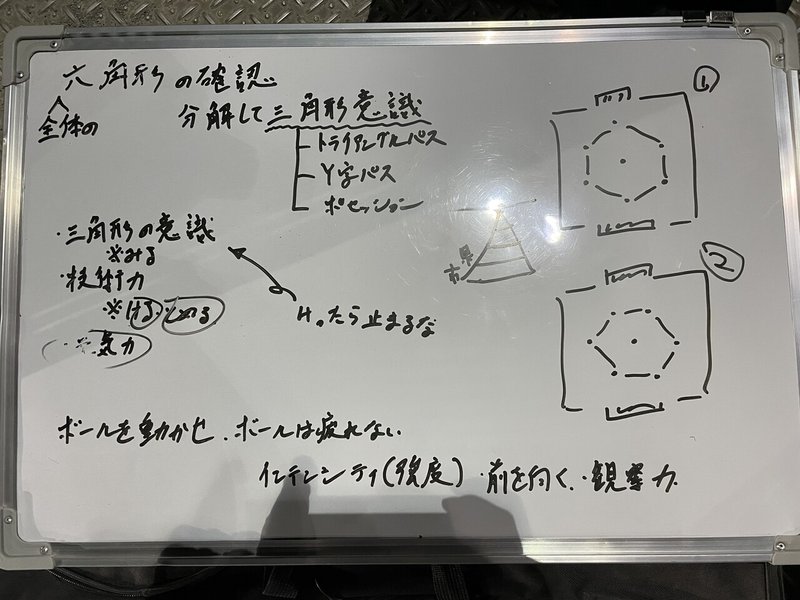 六角形の確認
全体の
分解して三角形意識
トライアングルパス
Y字パス
ポゼッション
①
・三角形の意識
※みる
・技術力
※ける・とめる
気力
たら止まるな
市 県
②
ボールを動かせ、ボールは疲れない
インテンシティ(強度)・前を向く・観察力